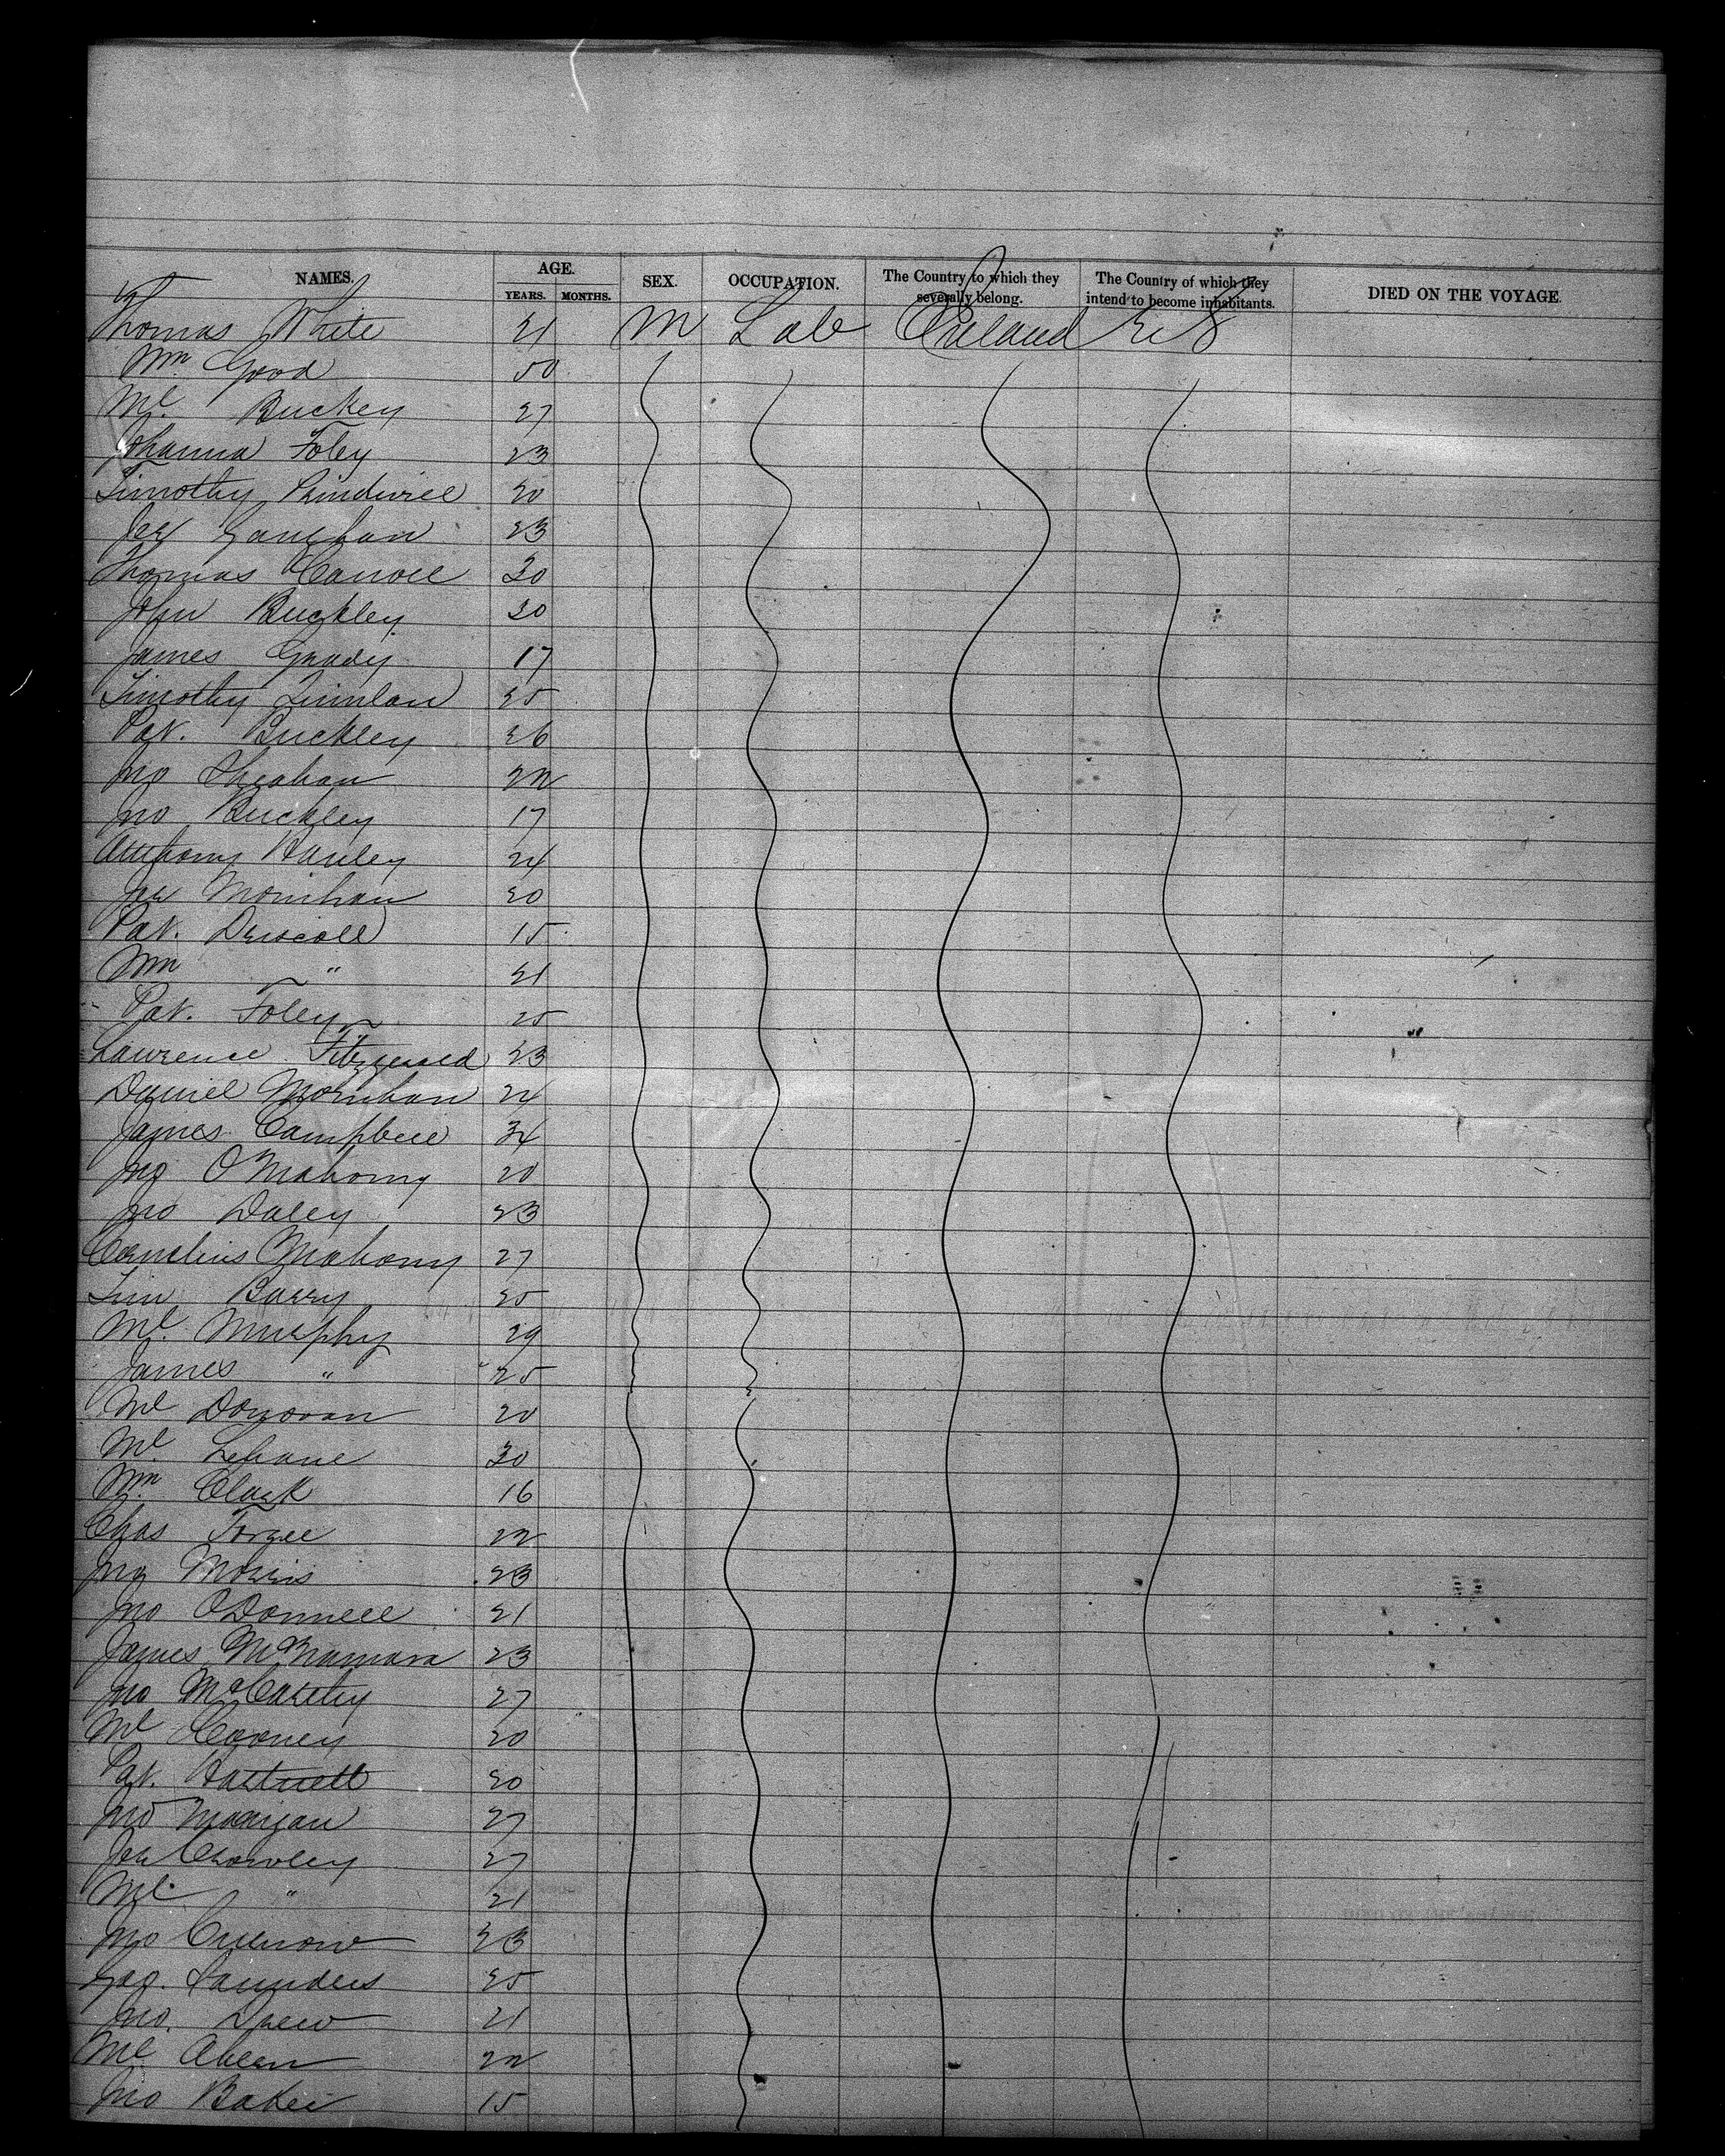 NAMES. AGE. SEX. OCCUPATION. The Country to which they severally belong. The Country of which they intend to become inhabitants. DIED ON THE VOYAGE.
YEARS. MONTHS.
Thomas White 21 M Lab Ireland U S
Wm Good 50
Ml. Buckey 27
Johanna Foley 23
Timothy Prindivill 20
Jer Gaughan 23
Thomas Carroll 30
John Buckley 30
James Grady 17
Timothy Quinlan 25
Pat. Buckley 26
Jno Sheahan 22
Jno Buckley 17
Anthony Hanley 24
Jer Monihan 20
Pat. Driscoll 15
Wm " 21
Pat. Foley 25
Lawrence Fitzgerald 23
Daniel Monihan 24
James Campbell 34
Jno O'Mahony 20
Jno Daley 23
Cornelius Mahony 27
Tim Barry 25
Ml. Murphy 29
James " 25
Ml Donovan 20
Ml. Lehane 30
Wm Clark 16
Chas 22
Jno Morris 23
Jno O'Donnell 21
James McNamara 23
Jno McCarthy 27
Ml Cooney 20
Pat. Hartnett 20
Jno 27
Jer Crowley 27
Ml. " 21
Jno 23
Geo. Saunders 25
Jno. Drew 21
Ml Ahern 22
Jno Baker 15